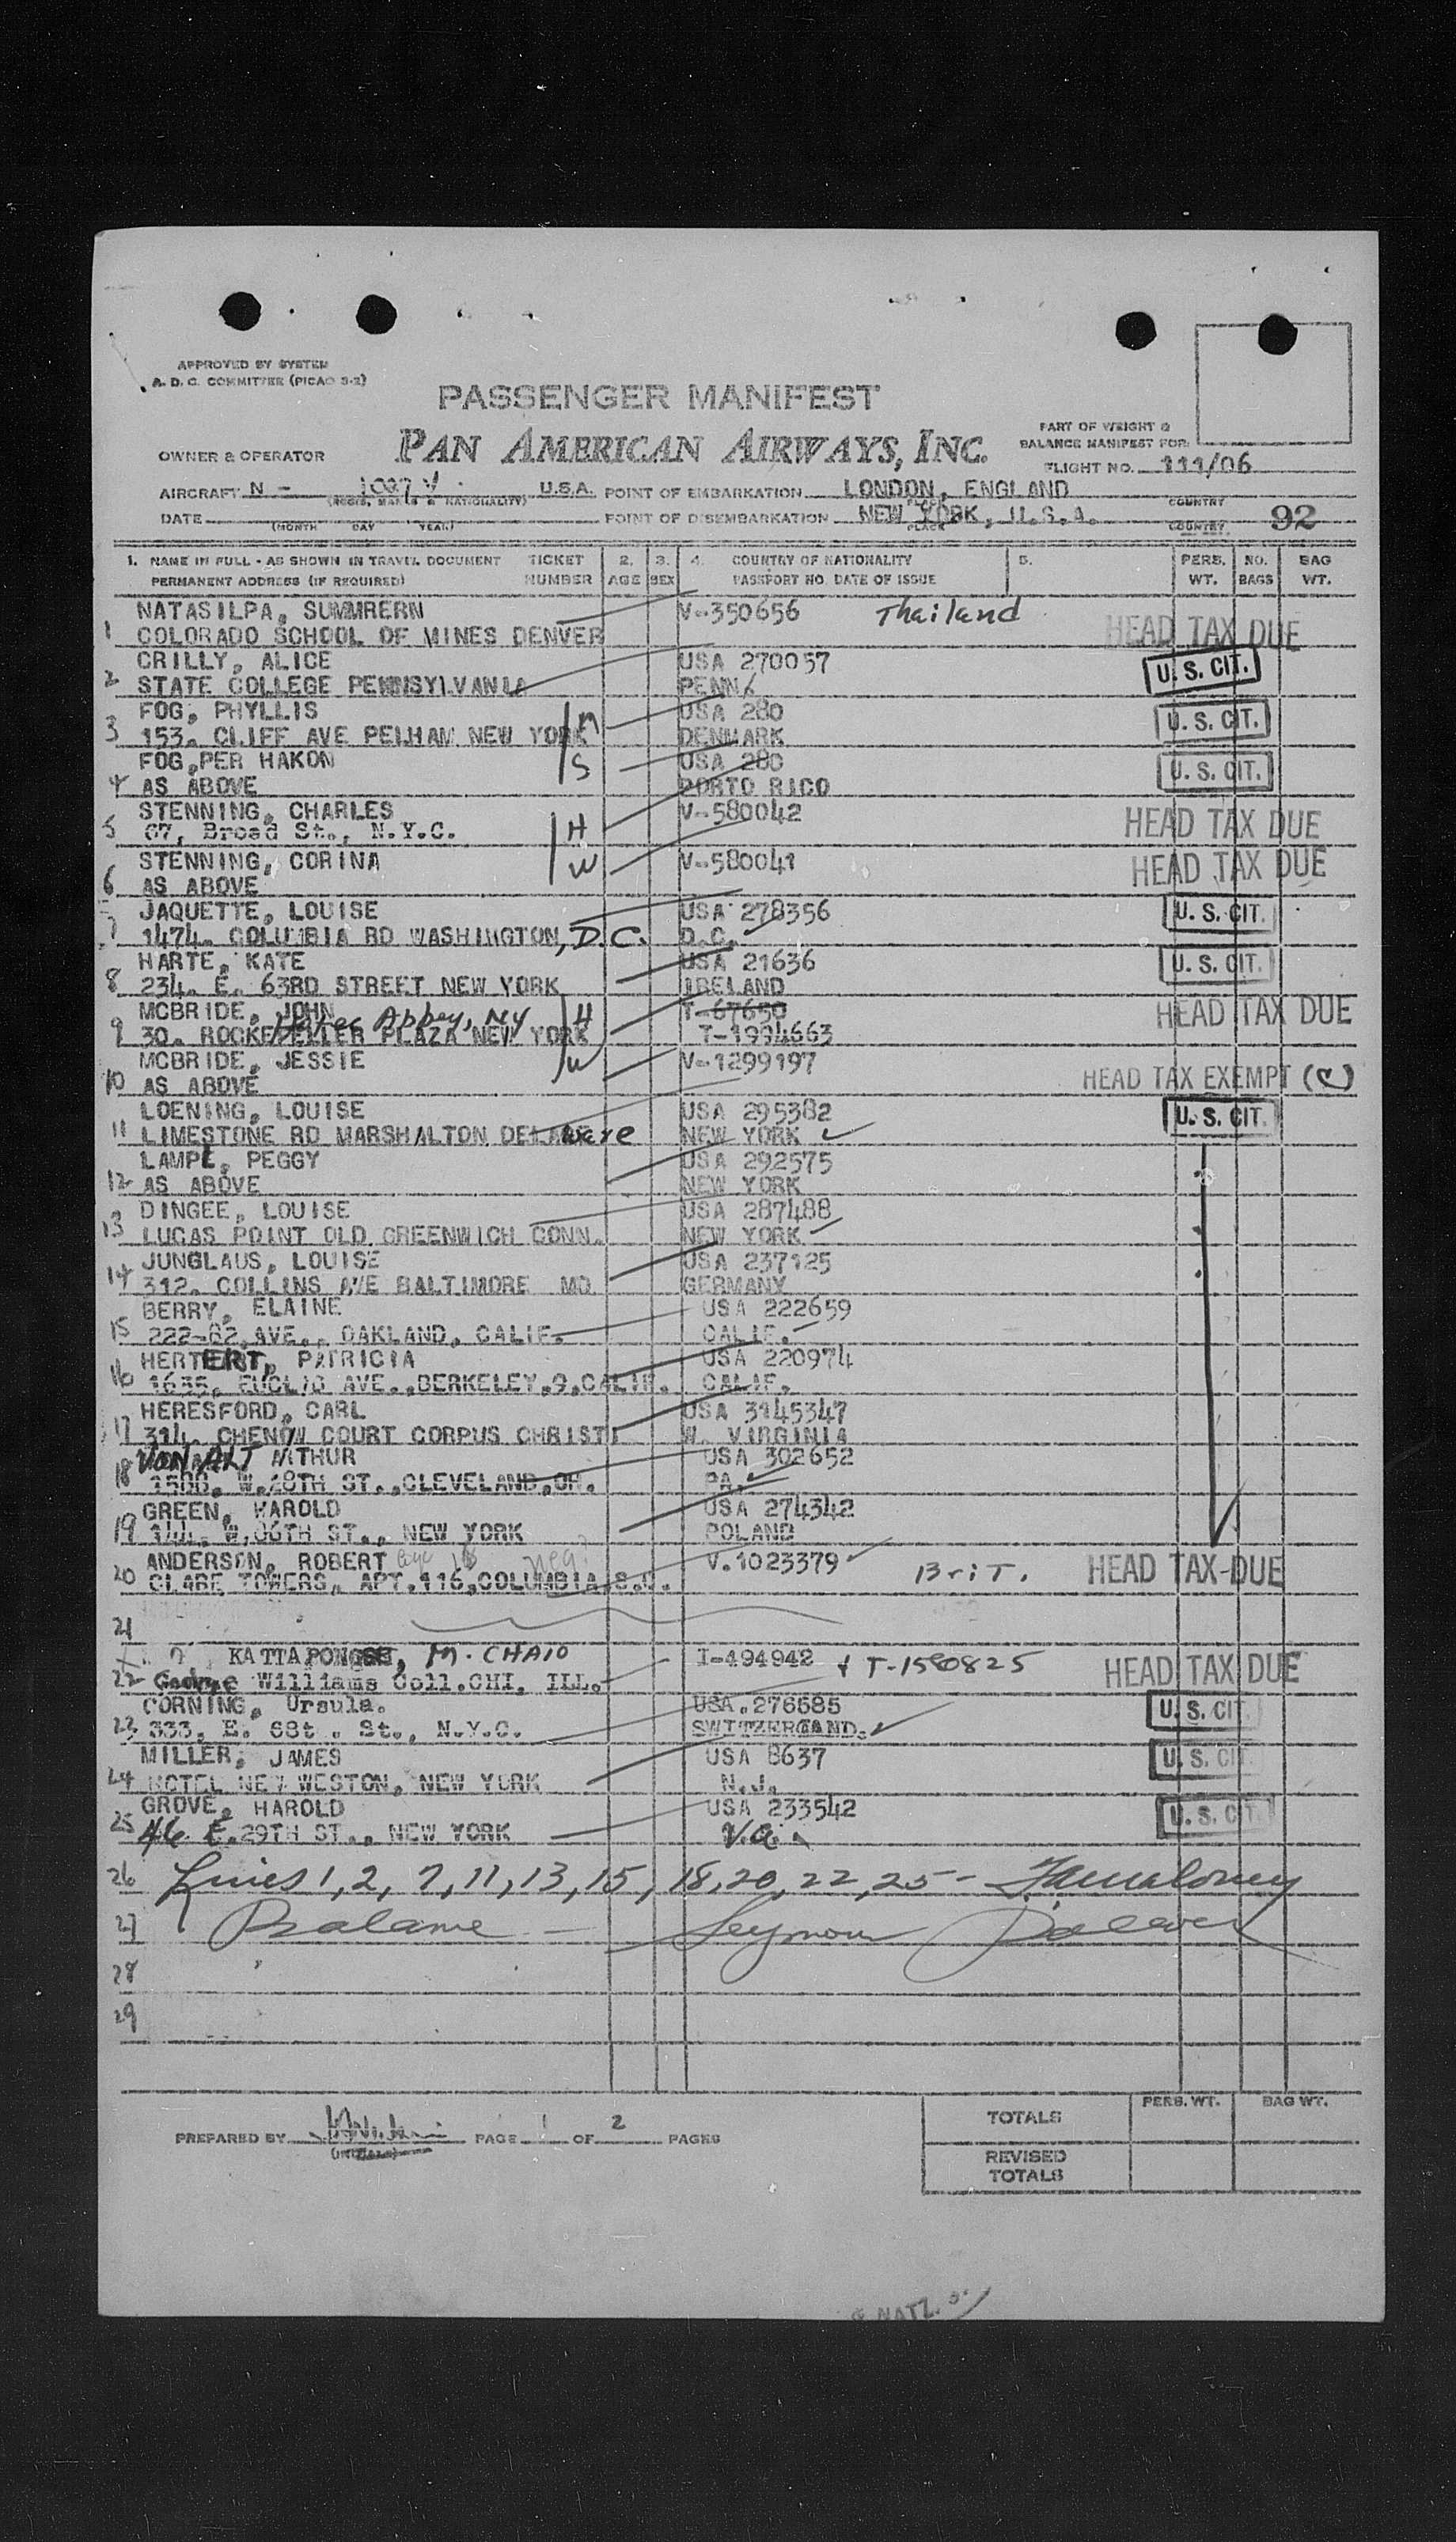 APPROVED BY SYSTEM
A. D. C. COMMITTEE (PICAO 3-2)
PASSENGER MANIFEST
PART OF WEIGHT &
OWNER & OPERATOR PAN AMERICAN AIRWAYS, INC. BALANCE MANIFEST FOR:
FLIGHT NO. 111/06
AIRCRAFT N - U.S.A. POINT OF EMBARKATION LONDON, ENGLAND
(REGIS. MARKS & NATIONALITY) PLACE COUNTRY
DATE POINT OF DISEMBARKATION NEW YORK, U.S.A. 92
(MONTH DAY YEAR) PLACE COUNTRY
1. NAME IN FULL - AS SHOWN IN TRAVEL DOCUMENT TICKET 2. 3. 4. COUNTRY OF NATIONALITY 5. PERS. NO. BAG
PERMANENT ADDRESS (IF REQUIRED) NUMBER AGE SEX PASSPORT NO. DATE OF ISSUE WT. BAGS WT.
NATASILPA, SUMMRERN V-350656 Thailand
1 COLORADO SCHOOL OF MINES DENVER HEAD TAX DUE
CRILLY, ALICE USA 270057 U. S. CIT.
2 STATE COLLEGE PENNSYLVANIA PENN
FOG, PHYLLIS M USA 280 U. S. CIT.
3 153. CLIFF AVE PELHAM NEW YORK DENMARK
FOG,PER HAKON S USA 280 U. S. CIT.
4 AS ABOVE PORTO RICO
STENNING, CHARLES H V-580042 HEAD TAX DUE
5 67, Broad St., N.Y.C.
STENNING, CORINA W V-580041 HEAD TAX DUE
6 AS ABOVE
JAQUETTE, LOUISE USA 278356 U. S. CIT.
7 1474. COLUMBIA RD WASHINGTON, D.C. D.C.
HARTE, KATE USA 21636 U. S. CIT.
8 234. E. 63RD STREET NEW YORK IRELAND
MCBRIDE, JOHN H T-67650 HEAD TAX DUE
Abbey, NY
9 30. ROCKEFELLER PLAZA NEW YORK T-1994663
MCBRIDE, JESSIE W V-1299197
10 AS ABOVE HEAD TAX EXEMPT
LOENING, LOUISE USA 295382 U. S. CIT.
11 LIMESTONE RD MARSHALTON DELAware NEW YORK
LAMPE, PEGGY USA 292575
12 AS ABOVE NEW YORK
DINGEE, LOUISE USA 287488
13 LUCAS POINT OLD GREENWICH CONN. NEW YORK
JUNGLAUS, LOUISE USA 237125
14 312. COLLINS AVE BALTIMORE MD GERMANY
BERRY, ELAINE USA 222659
15 222-82,AVE., OAKLAND, CALIF. CALIF.
HERTERT, PATRICIA USA 220974
16 1635, EUCLID AVE.,BERKELEY,9,CALIF. CALIF.
HERESFORD, CARL USA 3145347
17 314. CHENOW COURT CORPUS CHRISTI W. VIRGINIA
VON ALT ARTHUR USA 302652
18 W.28TH ST.,CLEVELAND,OH. PA.
GREEN, HAROLD USA 274342
19 144. W.86TH ST., NEW YORK POLAND
ANDERSON, ROBERT age 18 neg? V.1023379 Brit. HEAD TAX DUE
20 CLARE TOWERS, APT.116,COLUMBIA,S.C.
21
KATTAPONGSE, M. CHAIO I-494942 + T-1560825 HEAD TAX DUE
22 George Williams Coll.CHI, ILL.
CORNING, Ursula. USA.276585 U. S. CIT.
23 333, E. 68t. St., N.Y.C. SWITZERLAND.
MILLER, JAMES USA 8637 U. S. CIT
24 HOTEL NEW WESTON, NEW YORK N.J.
GROVE, HAROLD USA 233542 U. S. CIT
25 46 E.29TH ST., NEW YORK Va.
26 Lines 1, 2, 7, 11, 13, 15, 18, 20, 22, 25 -
27 Balance - Seymour
28
29
TOTALS PERS. WT. BAG WT.
PREPARED BY PAGE 1 OF 2 PAGES
(INITIALS)
REVISED
TOTALS
NATZ. S.